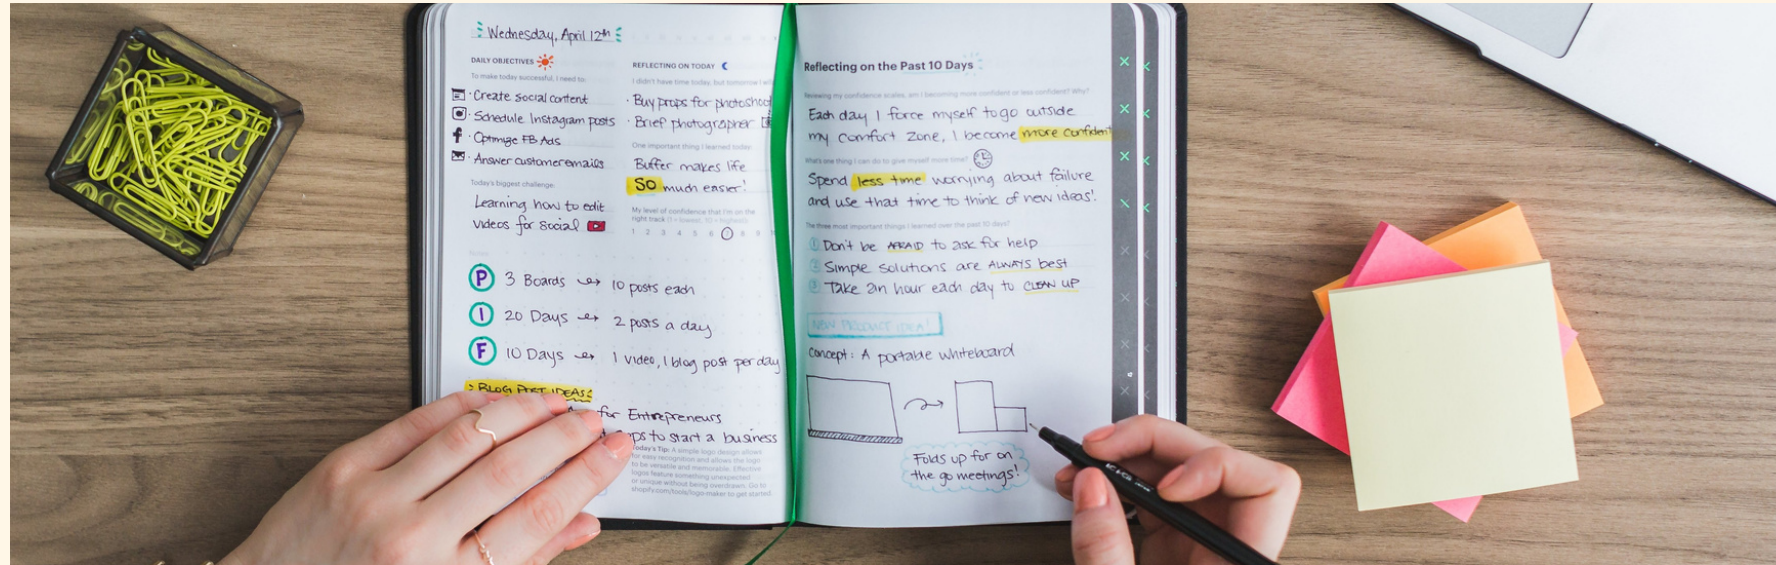 Wednesday, April 12th
DAILY OBJECTIVES
To make today successful, I need to:
· Create social content
· Schedule Instagram posts
· Optimize FB Ads
· Answer customer emails
Today's biggest challenge:
Learning how to edit
videos for social
Notes:
P 3 Boards → 10 posts each
I 20 Days → 2 posts a day
F 10 Days → 1 video, 1 blog post per day
> BLOG POST IDEAS:
for Entrepreneurs
to start a business
REFLECTING ON TODAY
I didn't have time today, but tomorrow I will
· Buy props for photoshoot
· Brief photographer
One important thing I learned today:
Buffer makes life
SO much easier!
My level of confidence that I'm on the
right track (1 = lowest, 10 = highest):
1 2 3 4 5 6 7 8 9
Today's Tip: A simple logo design allows
for easy recognition and allows the logo
to be versatile and memorable. Effective
logos feature something unexpected
or unique without being overdrawn. Go to
shopify.com/tools/logo-maker to get started.
Reflecting on the Past 10 Days
Reviewing my confidence scales, am I becoming more confident or less confident? Why?
Each day I force myself to go outside
my comfort zone, I become more confident
What's one thing I can do to give myself more time?
Spend less time worrying about failure
and use that time to think of new ideas!
The three most important things I learned over the past 10 days?
1 Don't be AFRAID to ask for help
2 Simple solutions are ALWAYS best
3 Take an hour each day to CLEAN UP
NEW PRODUCT IDEA!
Concept: A portable whiteboard
Folds up for on
the go meetings!